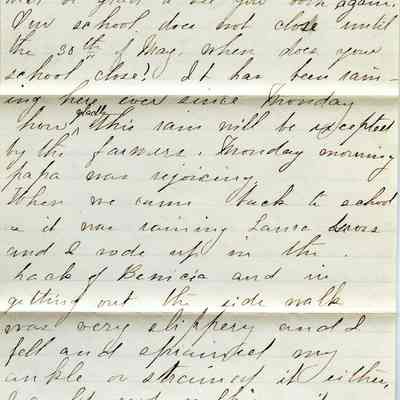 see you soon again.
Our school does not close until
the 30th of May. when does your
school close? It has been rain-
ing here ever since Monday
how gladly this rain will be excepted
by the farmers. Monday morning
papa was rejoicing
When we came back to school
as it was raining Laura
and I rode up in the
hack of Benicia and in
getting out the side walk
was very slippery and I
fell and sprained my
ankle or strained it either,